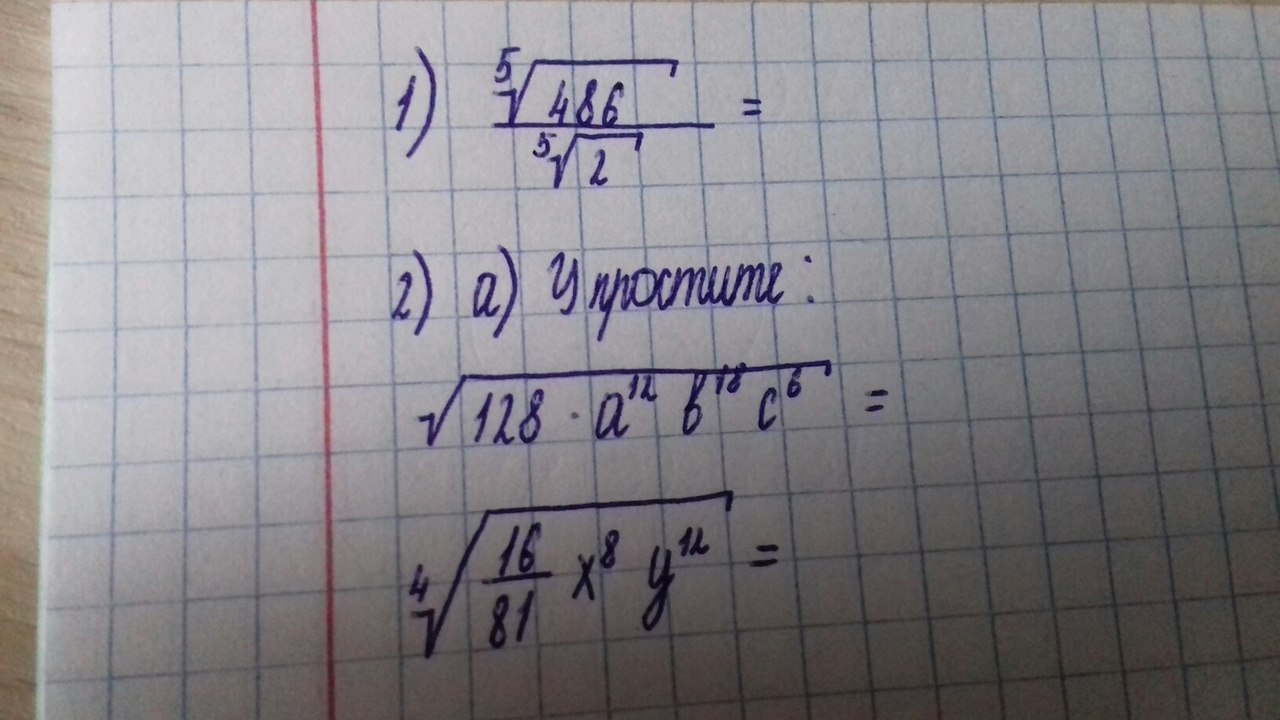 1) ⁵√486 / ⁵√2 =
2) а) Упростите:
√128 · a¹² b¹⁸ c⁶ =
⁴√16/81 x⁸ y¹² =